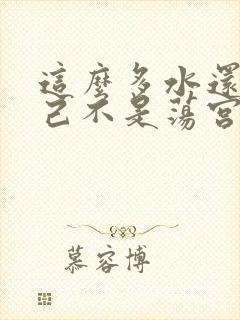 這麼多水還
己不是蕩宮
慕容博